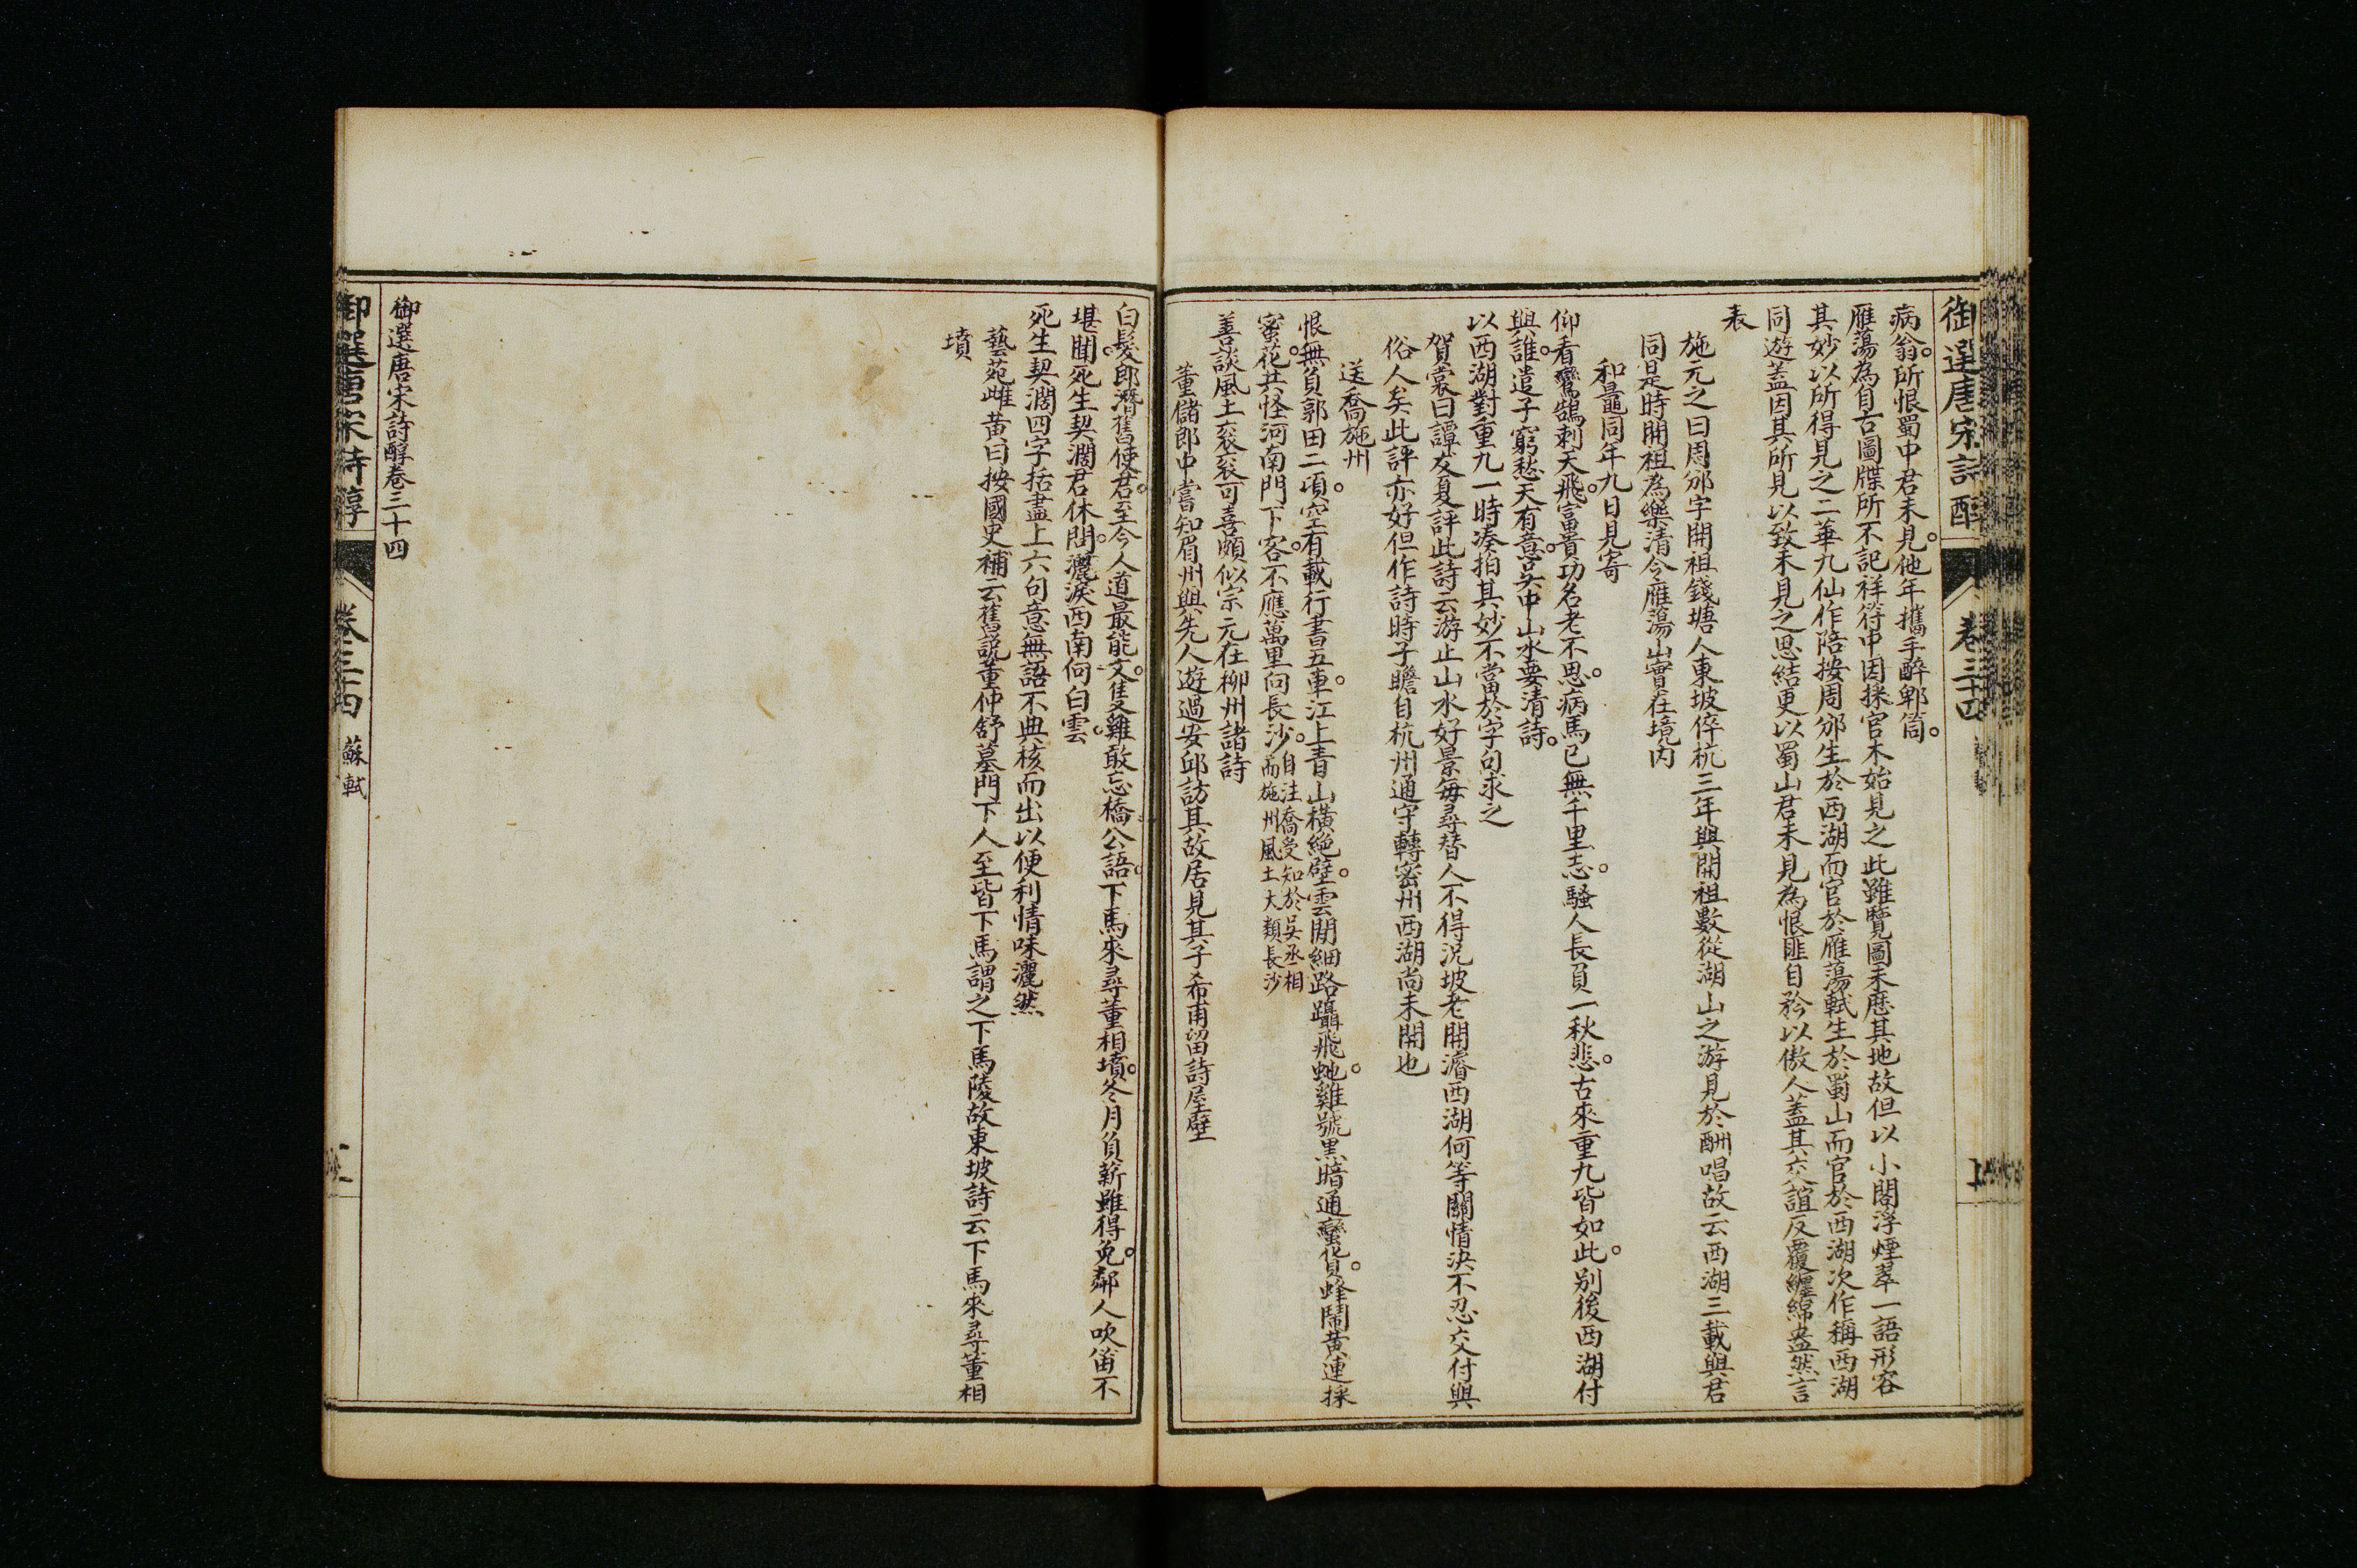 御選唐宋詩醇
卷三十四
病翁所恨蜀中君未見他年攜手醉郫筒
雁蕩為自古圖牒所不記祥符中因採官木始見之此雖覽圖未歷其地故但以小閣浮煙翠一語形容
其妙以所得見之二華九仙作陪按周邠生於西湖而官於雁蕩軾生於蜀山而官於西湖次作稱西湖
同遊蓋因其所見以致未見之思結更以蜀山君未見為恨匪自矜以傲人蓋其交誼反覆纏綿盎然言
表
施元之曰周邠字開祖錢塘人東坡倅杭三年與開祖數從湖山之游見於酬唱故云西湖三載與君
同是時開祖為樂清令雁蕩山實在境內
和鼂同年九日見寄
仰看鸞鵠刺天飛富貴功名老不思病馬已無千里志騷人長負一秋悲古來重九皆如此別後西湖付
與誰遣子窮愁天有意吳中山水要清詩
以西湖對重九一時湊拍其妙不當於字句求之
賀裳曰譚友夏評此詩云游止山水好景每尋替人不得況坡老開濬西湖何等關情決不忍交付與
俗人矣此評亦好但作詩時子瞻自杭州通守轉密州西湖尚未開也
送喬施州
恨無負郭田二項空有載行書五車江上青山橫絕壁雲間細路躡飛虵雞號黑暗通蠻貨蜂鬧黃連採
蜜花共怪河南門下客不應萬里向長沙
自注喬受知於吳丞相
而施州風土大類長沙
善談風土袞袞可喜頗似宗元在柳州諸詩
董儲郎中嘗知眉州與先人遊過安邱訪其故居見其子希甫留詩屋壁
白髮郎潛舊使君至今人道最能文隻雞敢忘橋公語下馬來尋董相墳冬月負薪雖得免鄰人吹笛不
堪聞死生契濶君休問灑淚西南向白雲
死生契濶四字括盡上六句意無語不典核而出以便利情味灑然
藝苑雌黃曰按國史補云舊說董仲舒墓門下人至皆下馬謂之下馬陵故東坡詩云下馬來尋董相
墳
御選唐宋詩醇卷三十四
御選唐宋詩醇
卷三十四
蘇軾